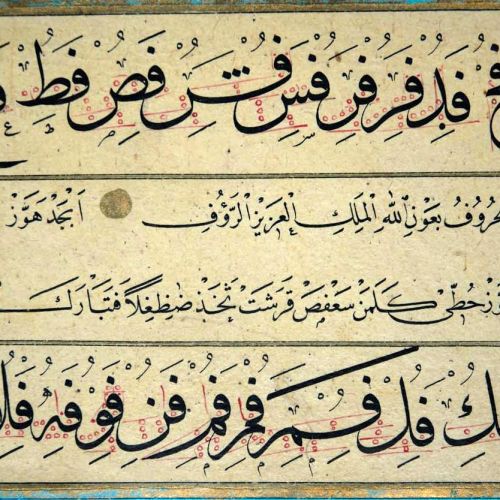 فد فر فر فس فس فص فط
حروف بعون الله الملك العزيز الرؤف ابجد هوز
حطى كلمن سعفص قرشت ثخذ ضظغلا فتبارك
فل فم فم فم فن فو فه فلا